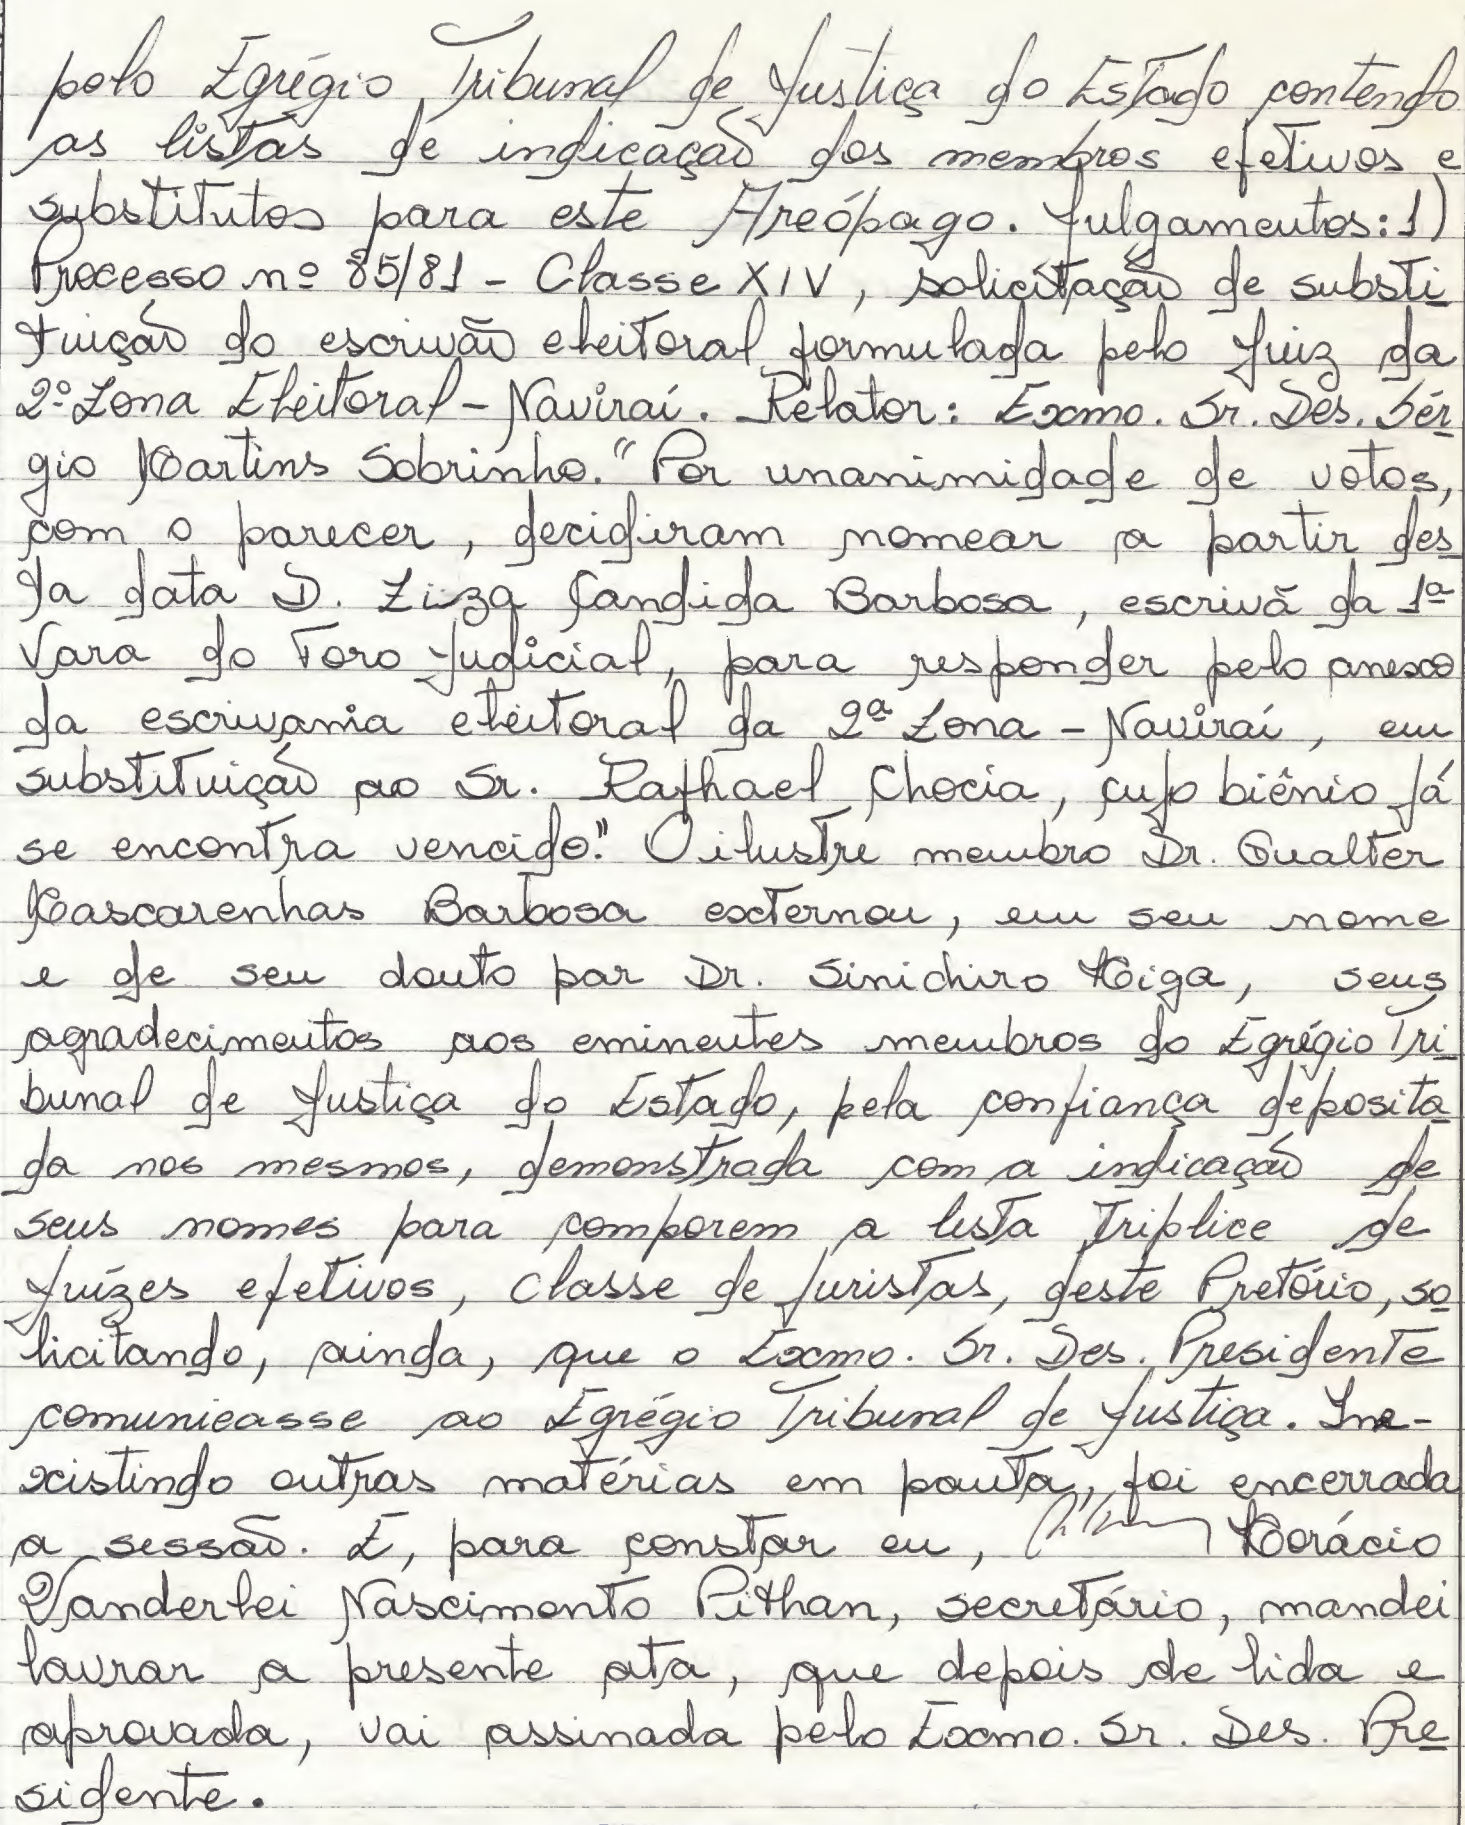 pelo Egrégio Tribunal de Justiça do Estado contendo
as listas de indicação dos membros efetivos e
substitutos para este Areópago. Julgamentos: 1)
Processo nº 85/81 - Classe XIV, solicitação de substi
tuição do escrivão eleitoral formulada pelo Juiz da
2ª Zona Eleitoral - Naviraí. Relator: Exmo. Sr. Des. Sér
gio Martins Sobrinho. "Por unanimidade de votos,
com o parecer, decidiram nomear a partir des
ta data D. Ziza Candida Barbosa, escrivã da 1ª
Vara do Foro Judicial, para responder pelo anexo
da escrivania eleitoral da 2ª Zona - Naviraí, em
substituição ao Sr. Raphael Chocia, cujo biênio já
se encontra vencido." O ilustre membro Dr. Gualter
Mascarenhas Barbosa externou, em seu nome
e de seu douto par Dr. Sinichiro Higa, seus
agradecimentos aos eminentes membros do Egrégio Tri
bunal de Justiça do Estado, pela confiança deposita
da nos mesmos, demonstrada com a indicação de
seus nomes para comporem a lista Tríplice de
Juízes efetivos, Classe de Juristas, deste Pretório, so
licitando, ainda, que o Exmo. Sr. Des. Presidente
comunicasse ao Egrégio Tribunal de Justiça. Ine-
xistindo outras matérias em pauta, foi encerrada
a sessão. E, para constar eu, Horácio
Vanderlei Nascimento Pithan, secretário, mandei
lavrar a presente ata, que depois de lida e
aprovada, vai assinada pelo Exmo. Sr. Des. Pre
sidente.